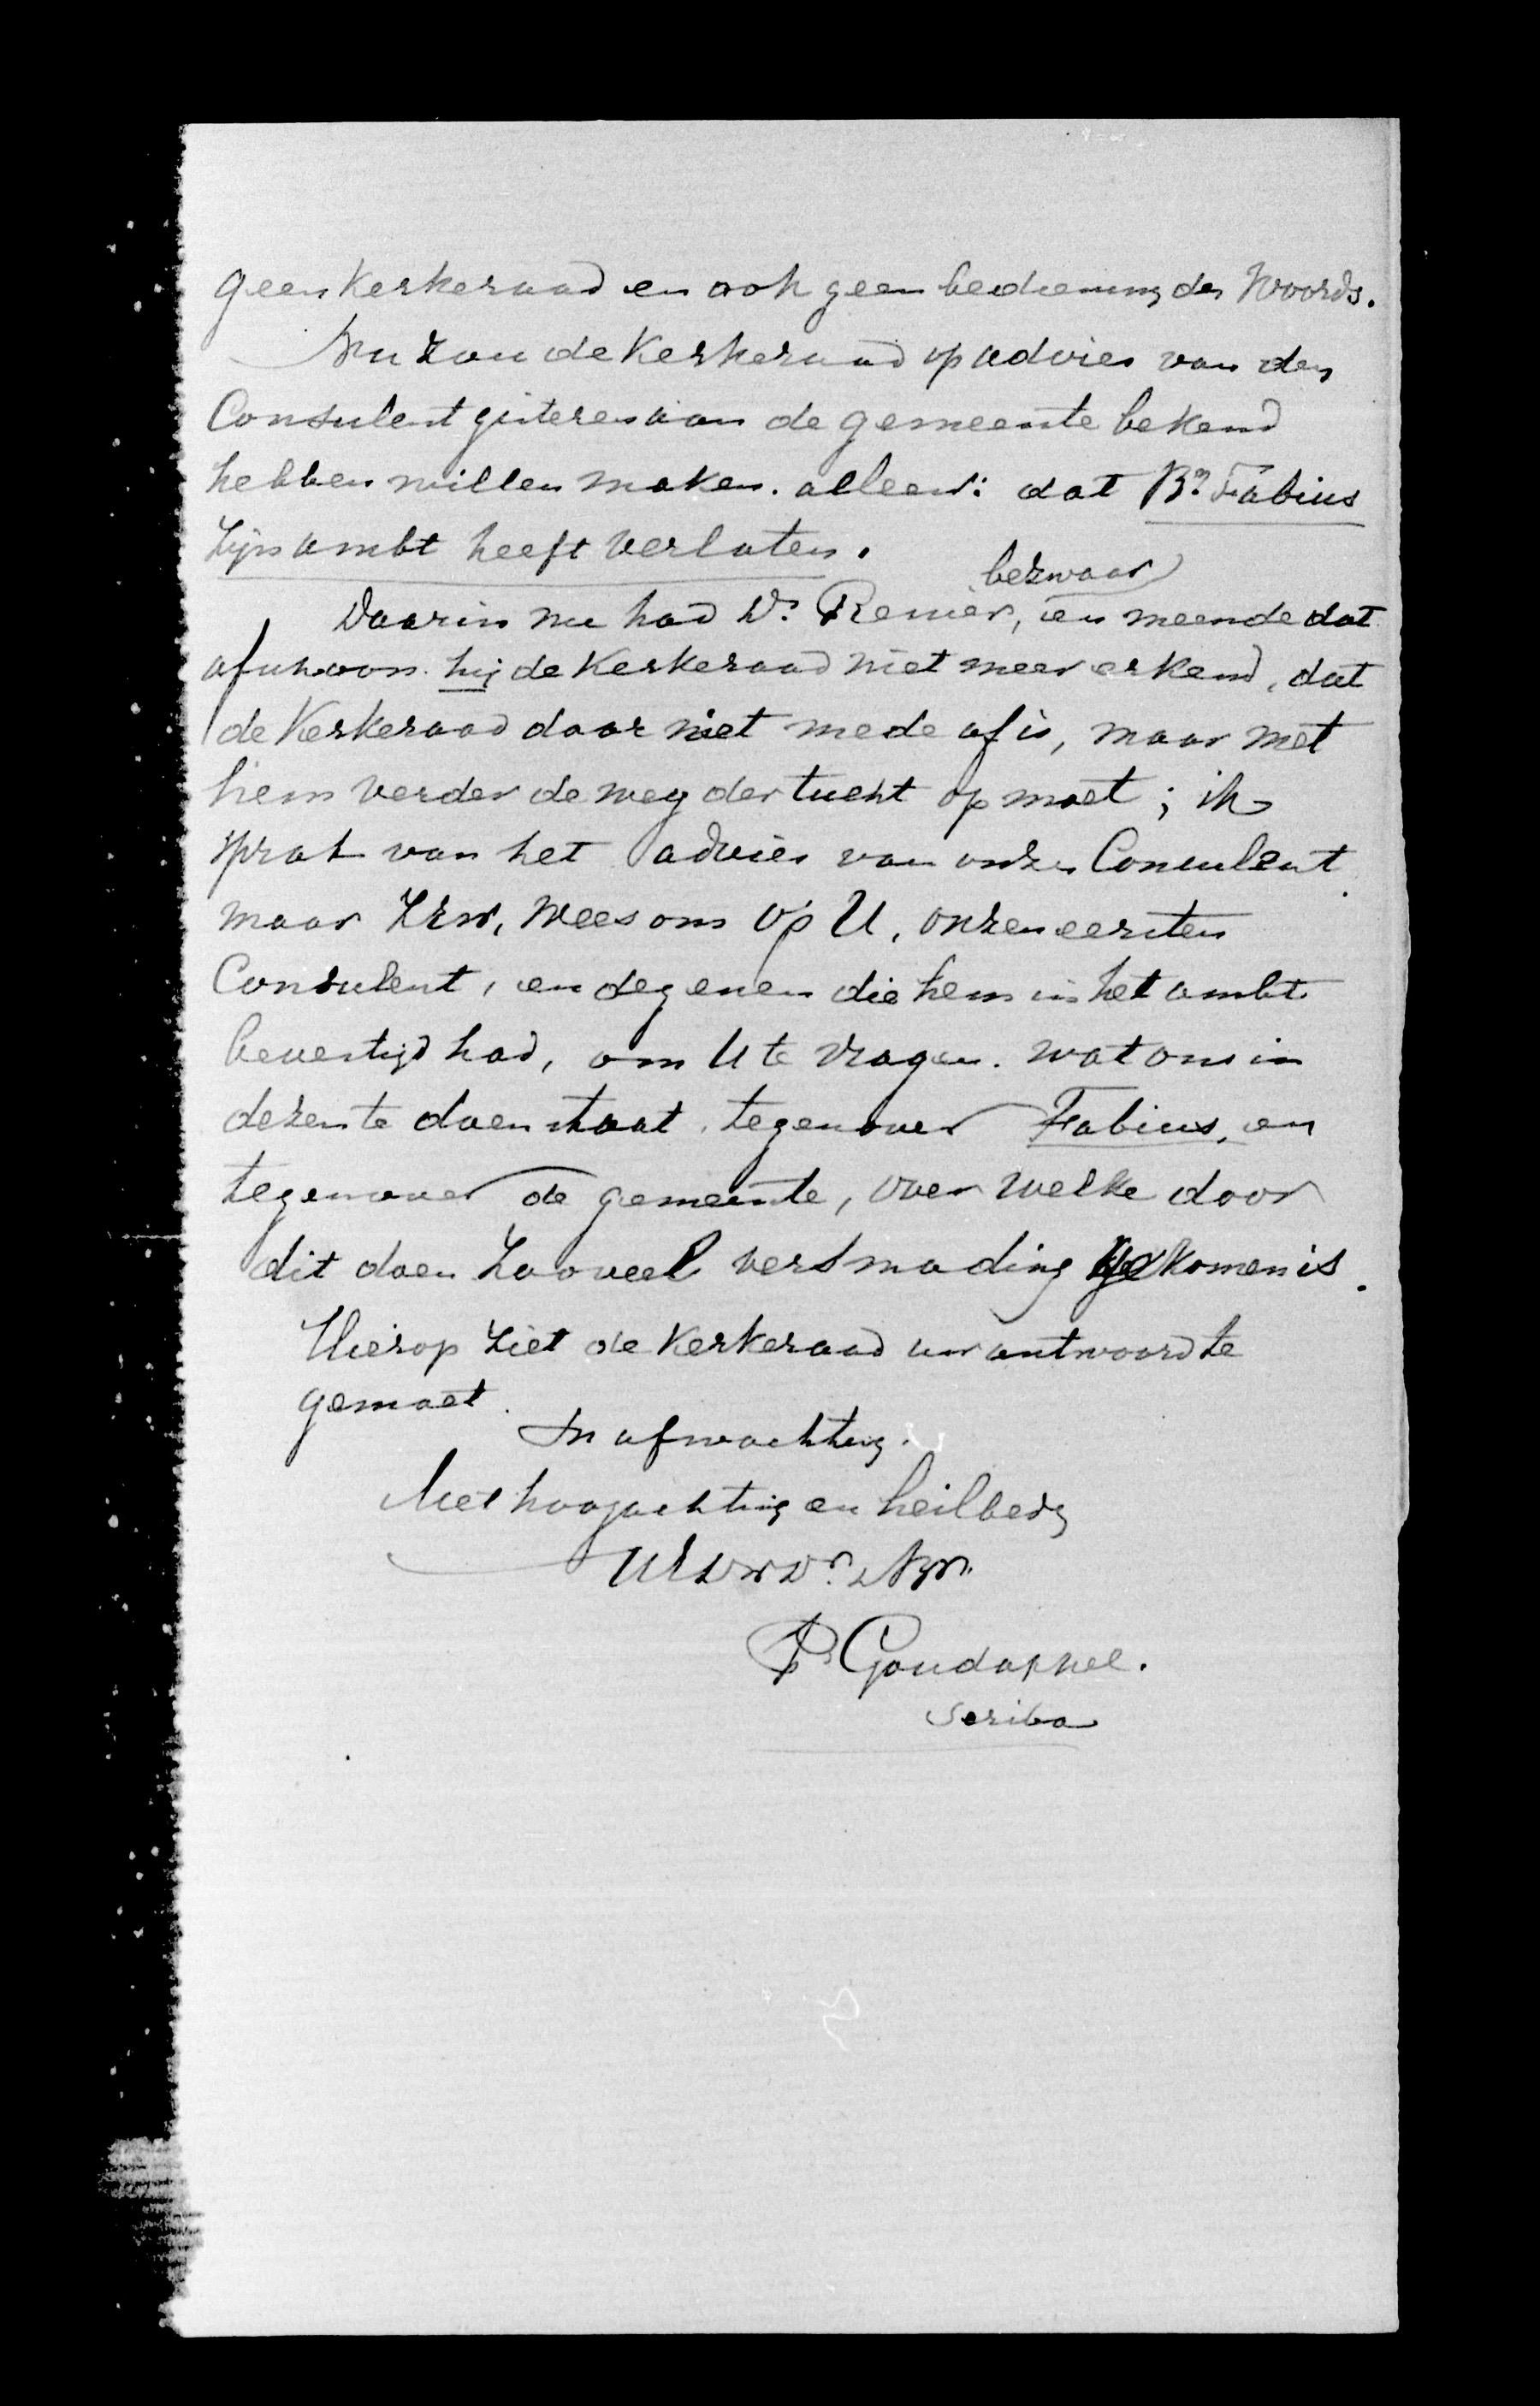 geen Kerkeraad en ook geen bediening des Woords.
Nu zou de Kerkeraad op advies van den
Consulent gisteren aan de gemeente bekend
hebben willen maken. alleen: dat Br. Fabius
Zijn ambt heeft verlaten.
bezwaar
Daarin nu had Ds. Renier, en meende dat
ofschoon hij de Kerkeraad niet meer erkend, dat
de Kerkeraad daar niet mede af is, maar met
hem verder de weg der tucht op moet; ik
sprak van het advies van onzen Consulent
maar ZEw. wees ons op U, onzen eersten
Consulent, en degenen die hem in het ambt
bevestigd had, om U te vragen. wat ons in
dezen te doen staat. tegenover Fabius, en
tegenover de gemeente, over welke door
dit doen Zooveel versmading gekomen is.
Hierop ziet de Kerkeraad uw antwoord te
gemoet.
In afwachting.
Met hoogachting en heilbede
P. Goudappel.
Scriba